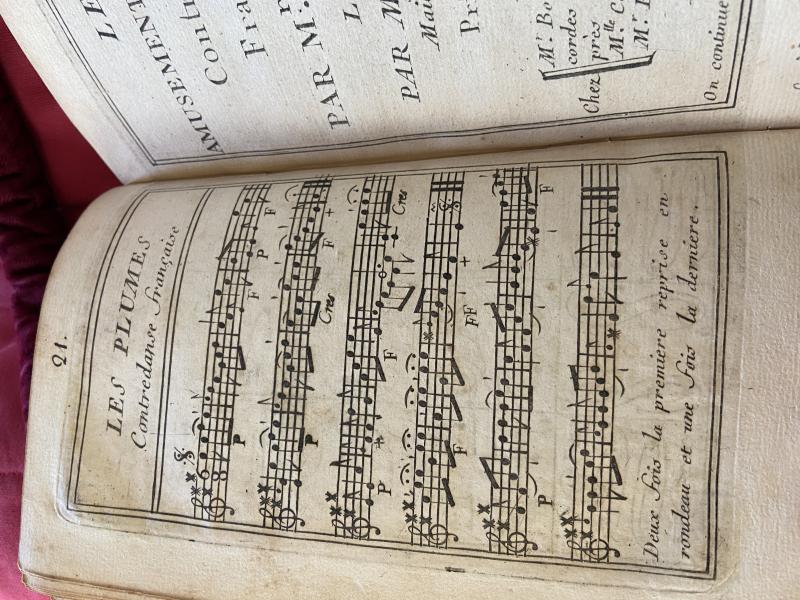 21.
LES PLUMES
Contredanse française
P
F
P
F
P
Cres
F
P
F
Cres
F
FF
P
F
Deux fois la premiere reprise en
rondeau et une fois la derniere.
LE
AMUSEMENT
Cont
Fra
PAR M.r
L
PAR M
Mai
Pr
Chez
M.r Bo
cordes
près
M.lle C
M.r
On continue